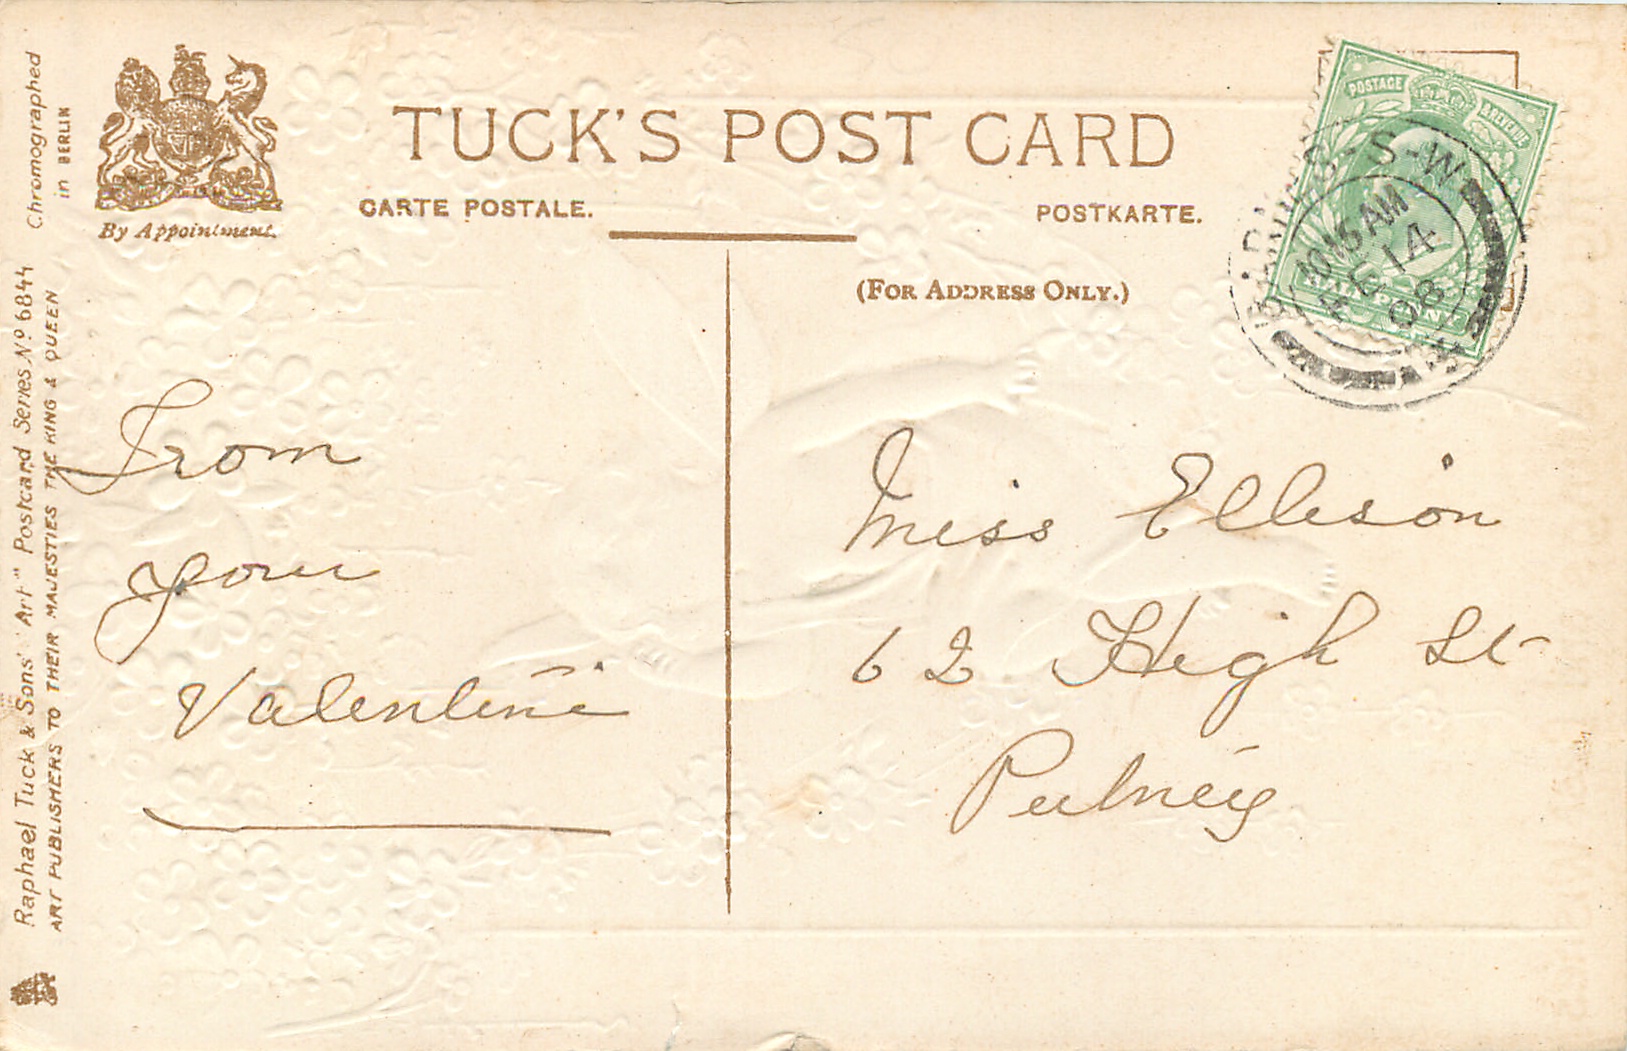 TUCK'S POST CARD
CARTE POSTALE.
POSTKARTE.
(FOR ADDRESS ONLY.)
By Appointment.
Chromographed
in BERLIN
Raphael Tuck & Sons' "Art" Postcard Series No 6844
ART PUBLISHERS TO THEIR MAJESTIES THE KING & QUEEN
POSTAGE
& REVENUE
S-W
10 15 AM
FE 14
08
From
your
Valentine
Miss Ellison
62 High St
Putney